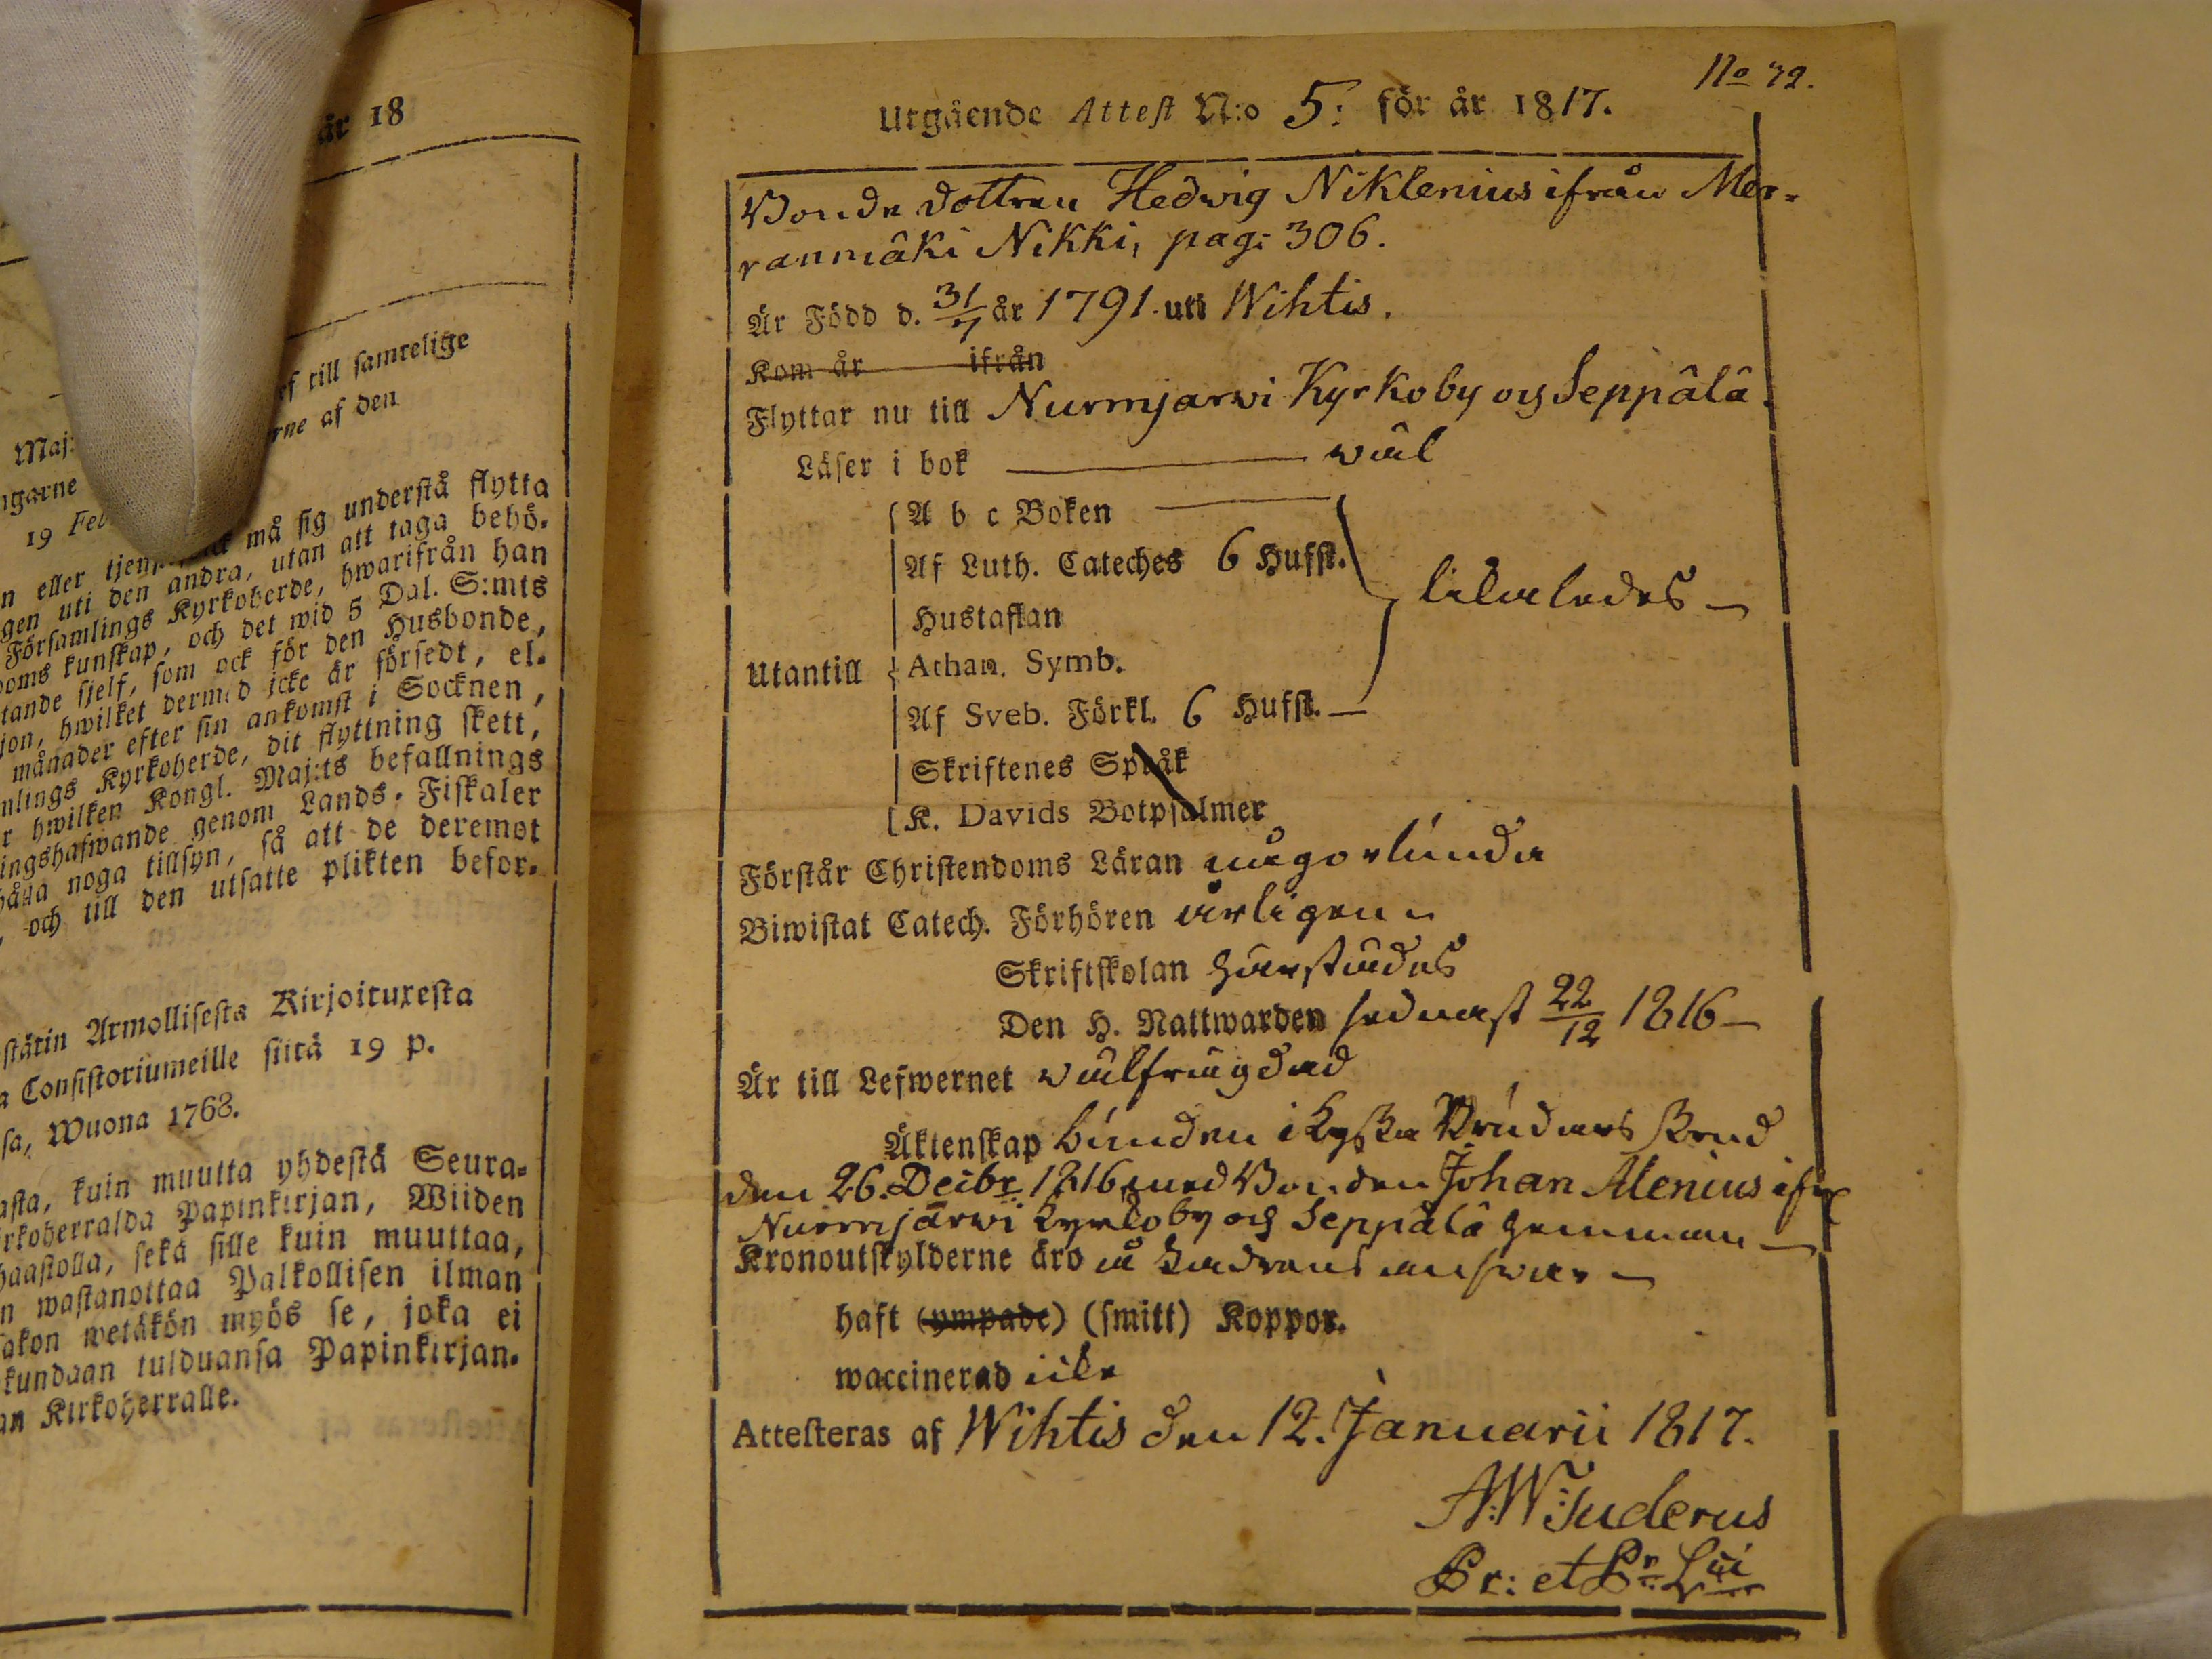 år 18
rf till samtelige
Maj:
rne af den
ngarne
19 Feb
må sig understå flytta
n eller tjen
gen uti den andra, utan att taga behö-
Församlings Kyrkoherde, hwarifrån han
doms kunskap, och det wid 5 Dal. S:mts
tande sjelf, som ock för den Husbonde,
jon, hwilket dermed icke är försedt, el-
månader efter sin ankomst i Socknen,
mlings Kyrkoherde, dit flyttning skett,
r hwilken Kongl. Maj:ts befallnings
ingshafwande genom Lands-Fiskaler
hålla noga tillsyn, så att de deremot
, och till den utsatte plikten befor-
stätin Armollisesta Kirjoituxesta
a Consistoriumeille siitä 19 p.
sa, Wuona 1768.
asta, kuin muutta yhdestä Seura-
rkoherralda Papinkirjan, Wiiden
haastolla, sekä sille kuin muuttaa,
n wastanottaa Palkollisen ilman
sakon wetäkön myös se, joka ei
kundaan tulduansa Papinkirjan-
an Kirkoherralle.
No 72.
Utgående Attest N:o 5: för år 1817.
Bonde dottren Hedwig Niklenius ifrån Mer-
ranmäki Nikki, pag: 306.
Är Född d. 31/7 år 1791. uti Wihtis.
Kom år ifrån
Flyttar nu till Nurmjarwi Kyrkoby och Seppälä.
Läser i bok wäl
A b c Boken
Af Luth. Cateches 6 Hufst.
Hustaflan likaledes
Utantill Athan. Symb.
Af Sveb. Förkl. 6 Hufst.
Skriftenes Språk
K. Davids Botpsalmer
Förstår Christendoms Läran någorlunda
Biwistat Catech. Förhören årligen
Skriftskolan härstädes
Den H. Nattwarden sednast 22/12 1816
Är till Lefwernet wälfrägdad
Äktenskap bunden i Kyrko Brudars stånd
den 26. Decibr. 1816 med Bonden Johan Alenius ifr.
Nurmjärwi Kyrkoby och Seppälä hemman
Kronoutskylderne äro på ansvar
haft (ympade) (smitt) Koppor.
waccinerad icke
Attesteras af Wihtis den 12. Januarii 1817.
A:W:Juderus
Pr: et